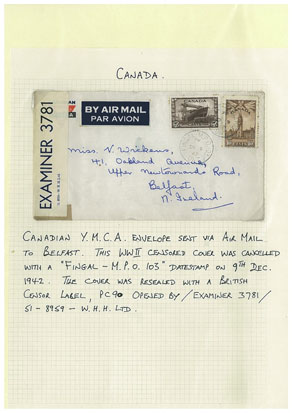 CANADA.
EXAMINER 3781
BY AIR MAIL
PAR AVION
CANADA
Miss. V. Wilkens,
41, Oakland Avenue,
Upper Newtownards Road,
Belfast,
N. Ireland.
CANADIAN Y.M.C.A. ENVELOPE SENT VIA AIR MAIL
TO BELFAST. THIS WWII CENSORED COVER WAS CANCELLED
WITH A "FINGAL - M.P.O. 103" DATESTAMP ON 9TH DEC.
1942. THE COVER WAS RESEALED WITH A BRITISH
CENSOR LABEL, PC90 OPENED BY/EXAMINER 3781/
51-8959 - W.H.H. LTD.